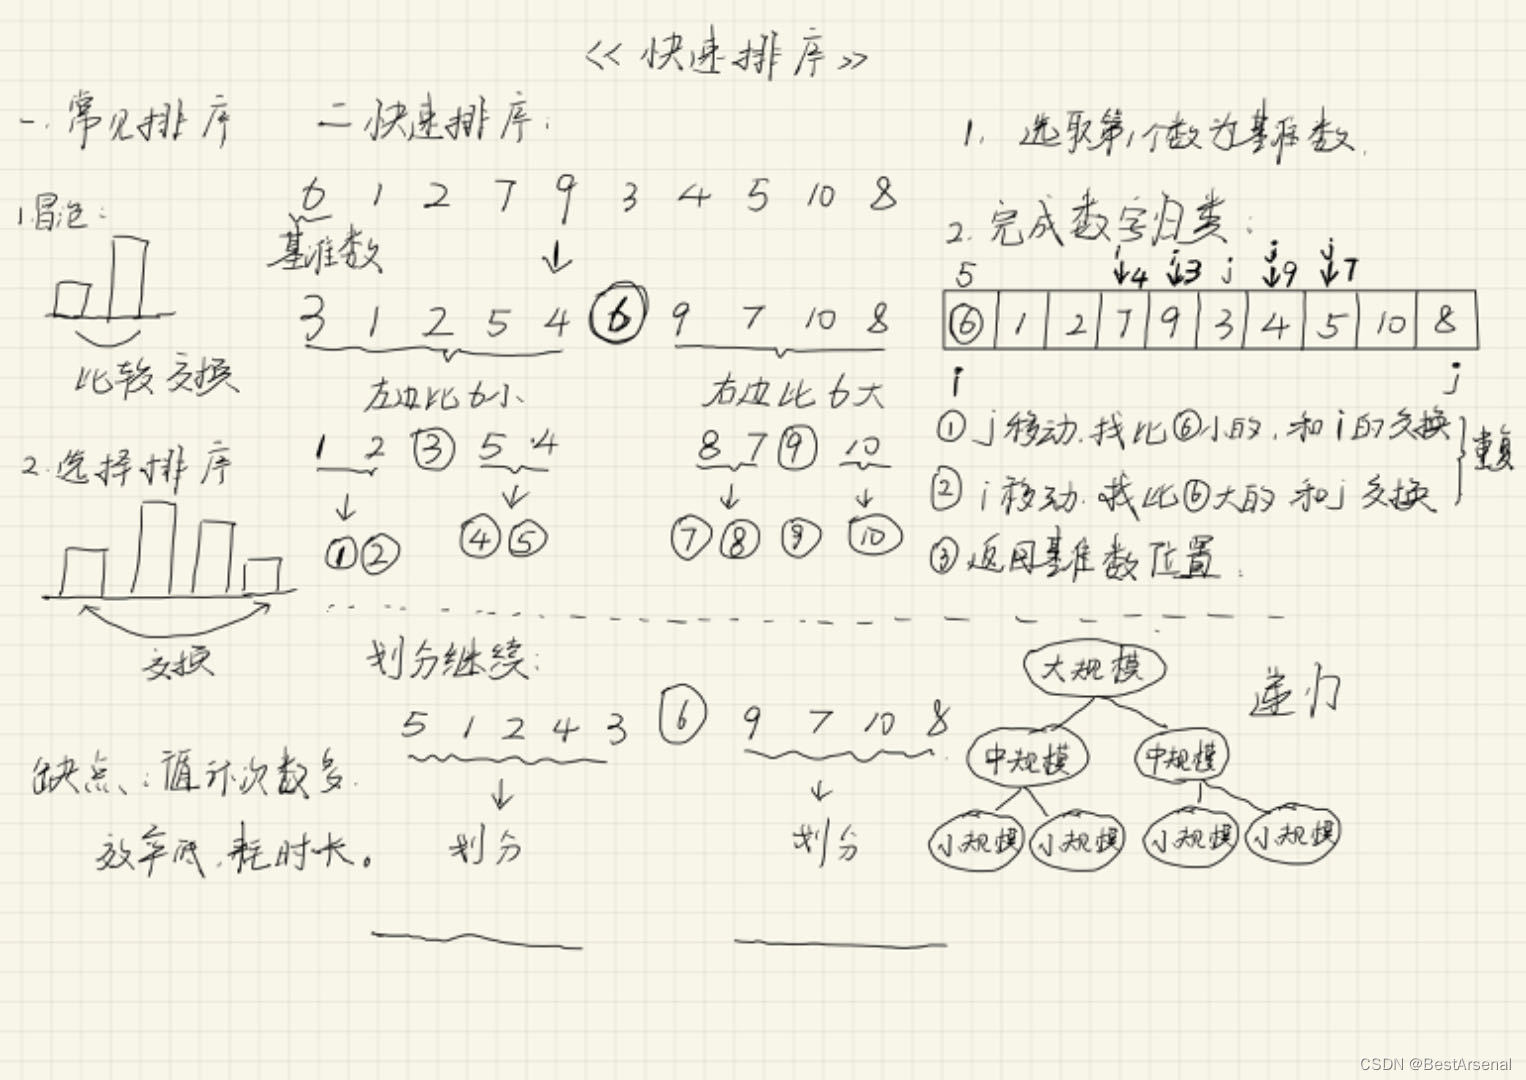 <<快速排序>>
一.常见排序
1.冒泡:
比较交换
2.选择排序
交换
缺点:循环次数多.
效率低,耗时长。
二快速排序:
6 1 2 7 9 3 4 5 10 8
基准数
3 1 2 5 4 ⑥ 9 7 10 8
左边比6小 右边比6大
1 2 ③ 5 4 8 7 ⑨ 10
① ② ④ ⑤ ⑦ ⑧ ⑨ ⑩
划分继续:
5 1 2 4 3 ⑥ 9 7 10 8
划分 划分
1. 选取第1个数为基准数.
2.完成数字归类:
i j j j
5 4 3 j 9 7
⑥ 1 2 7 9 3 4 5 10 8
i j
① j移动.找比⑥小的,和i的交换
② i移动.找比⑥大的 和j交换
重复
③ 返回基准数位置.
大规模 递归
中规模 中规模
小规模 小规模 小规模 小规模
CSDN @BestArsenal